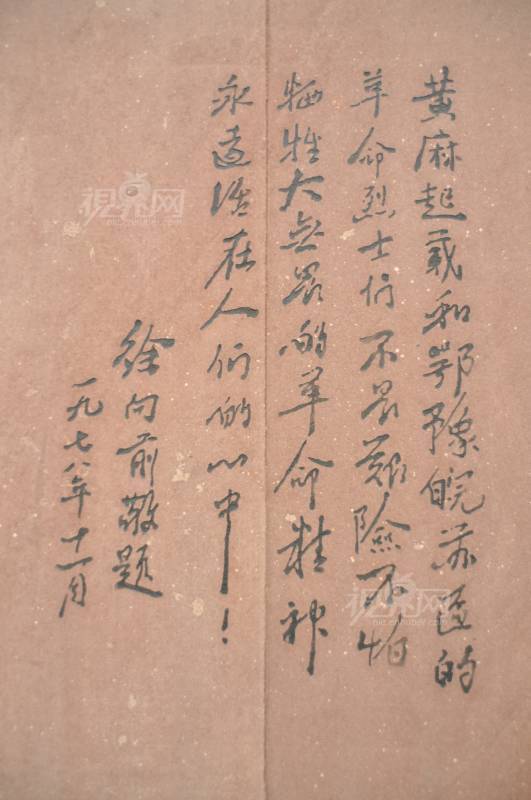 黄麻起义和鄂豫皖苏区的
革命烈士们不畏艰险不怕
牺牲大无畏的革命精神
永远活在人们的心中！
徐向前敬题
一九七八年十一月
视界网
视界网